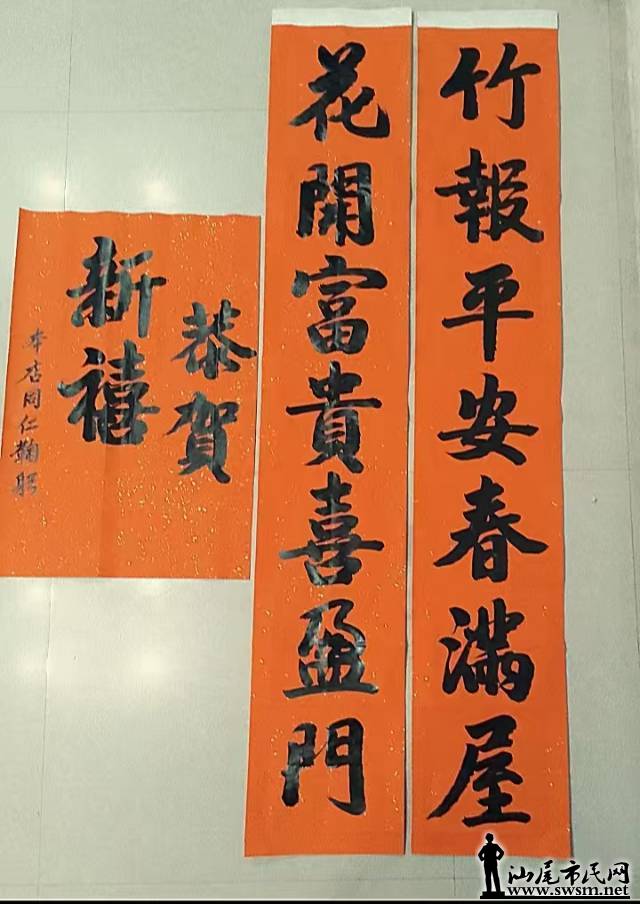 竹報平安春滿屋
花開富貴喜盈門
恭賀
新禧
本店同仁鞠躬
汕尾市民网
www.swsm.net